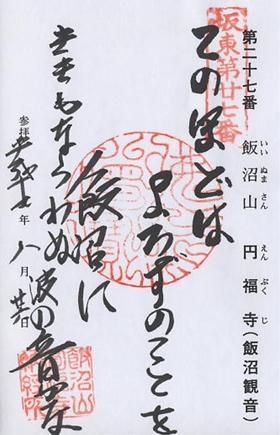 坂東第廿七番
第二十七番 飯沼山 円福寺(飯沼観音)
いいぬまさん えんぷくじ
このほどは
よろずのことを
飯沼に
ききもならわぬ
波の音かな
参拝 平成十七年 八月